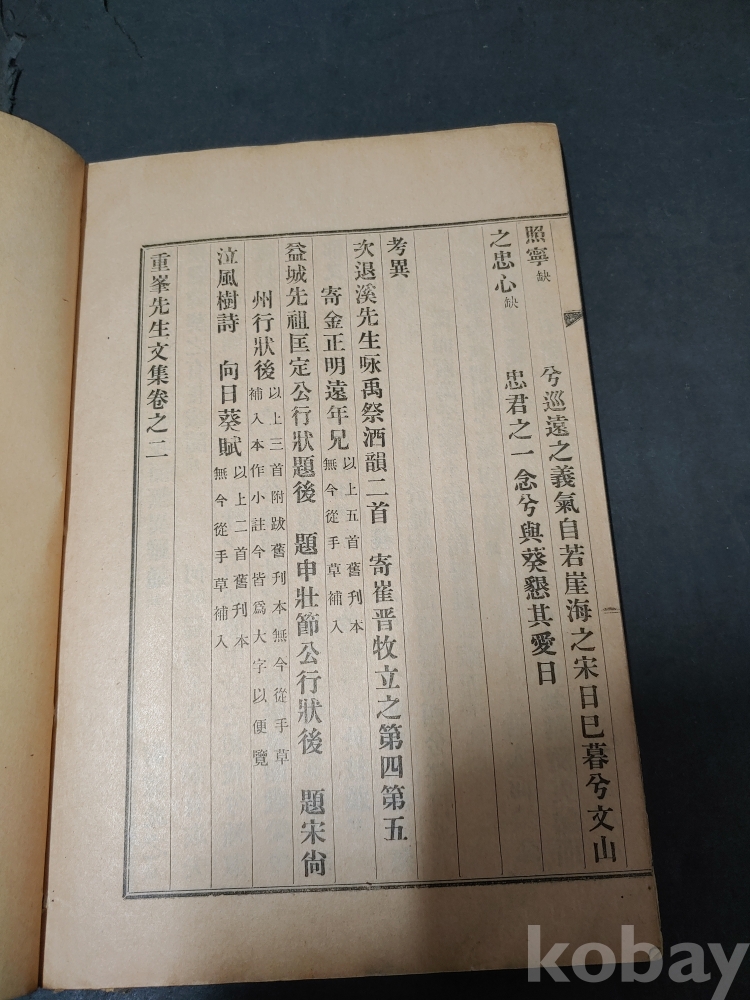 照寧缺　兮巡遠之義氣自若崖海之宋日巳暮兮文山
之忠心缺　忠君之一念兮與葵懇其愛日
考異
次退溪先生咏禹祭酒韻二首　寄崔晋牧立之第四第五
寄金正明遠年兄以上五首舊刋本無今從手草補入
益城先祖匡定公行狀題後　題申壯節公行狀後　題宋尙
州行狀後以上三首附跋舊刋本無今從手草補入本作小註今皆爲大字以便覽
泣風樹詩　向日葵賦以上二首舊刋本無今從手草補入
重峯先生文集卷之二
kobay